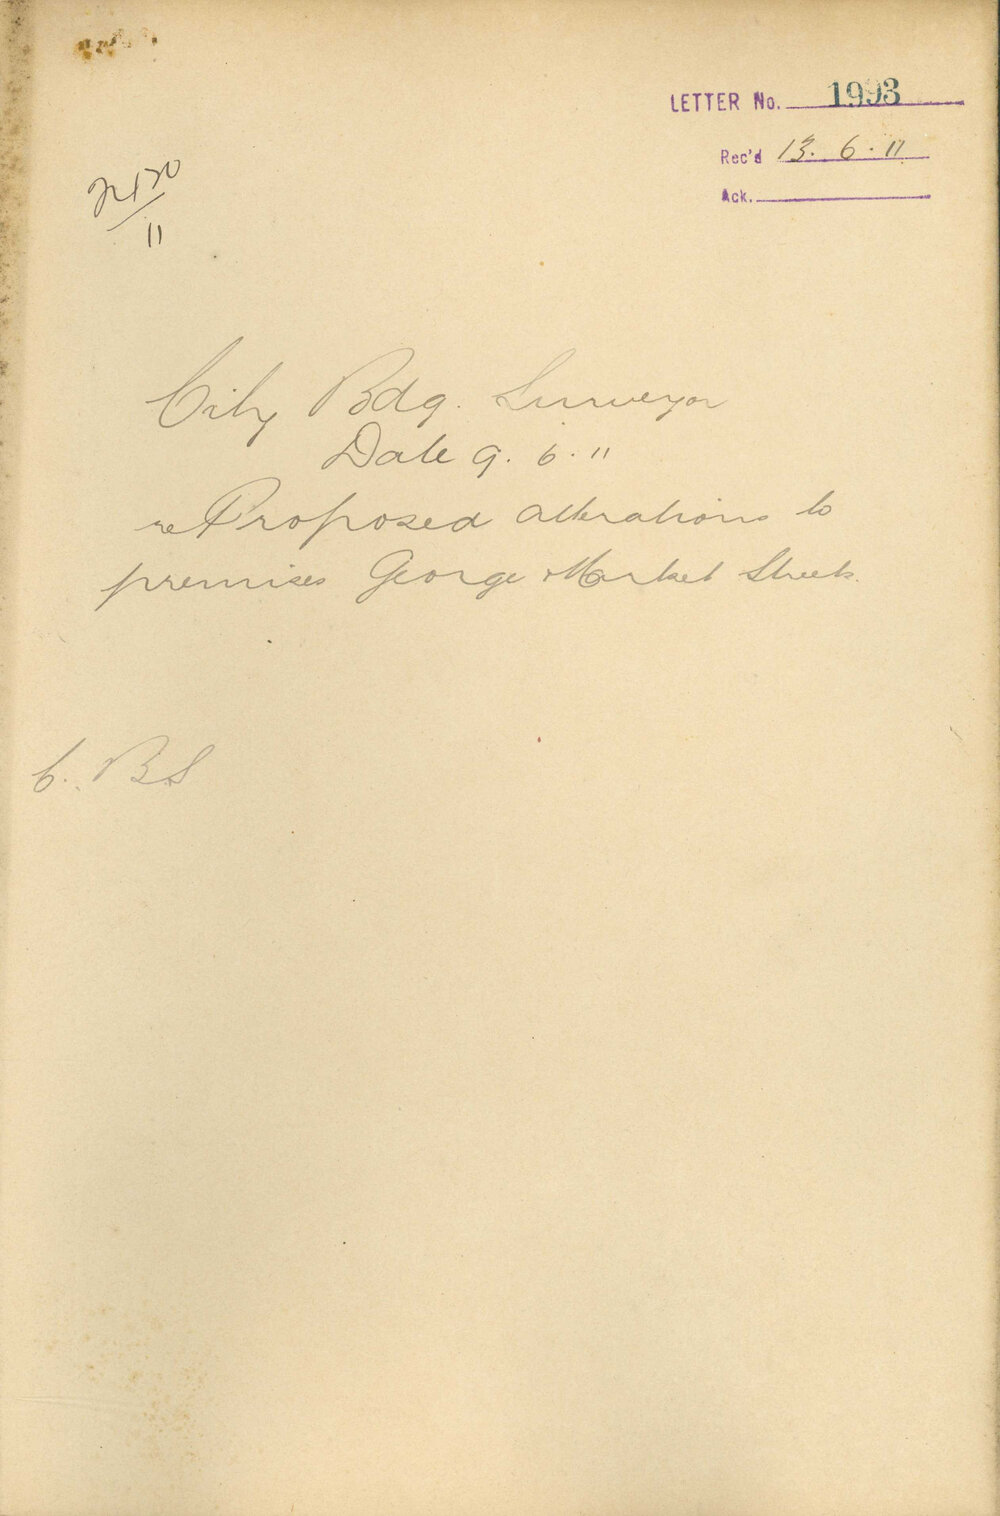 LETTER No. 1993
Rec'd 13. 6. 11
Ack.
2120
11
City Bdg. Surveyor
Date 9. 6. 11
re Proposed alterations to
premises George & Market Streets.
C. B.S